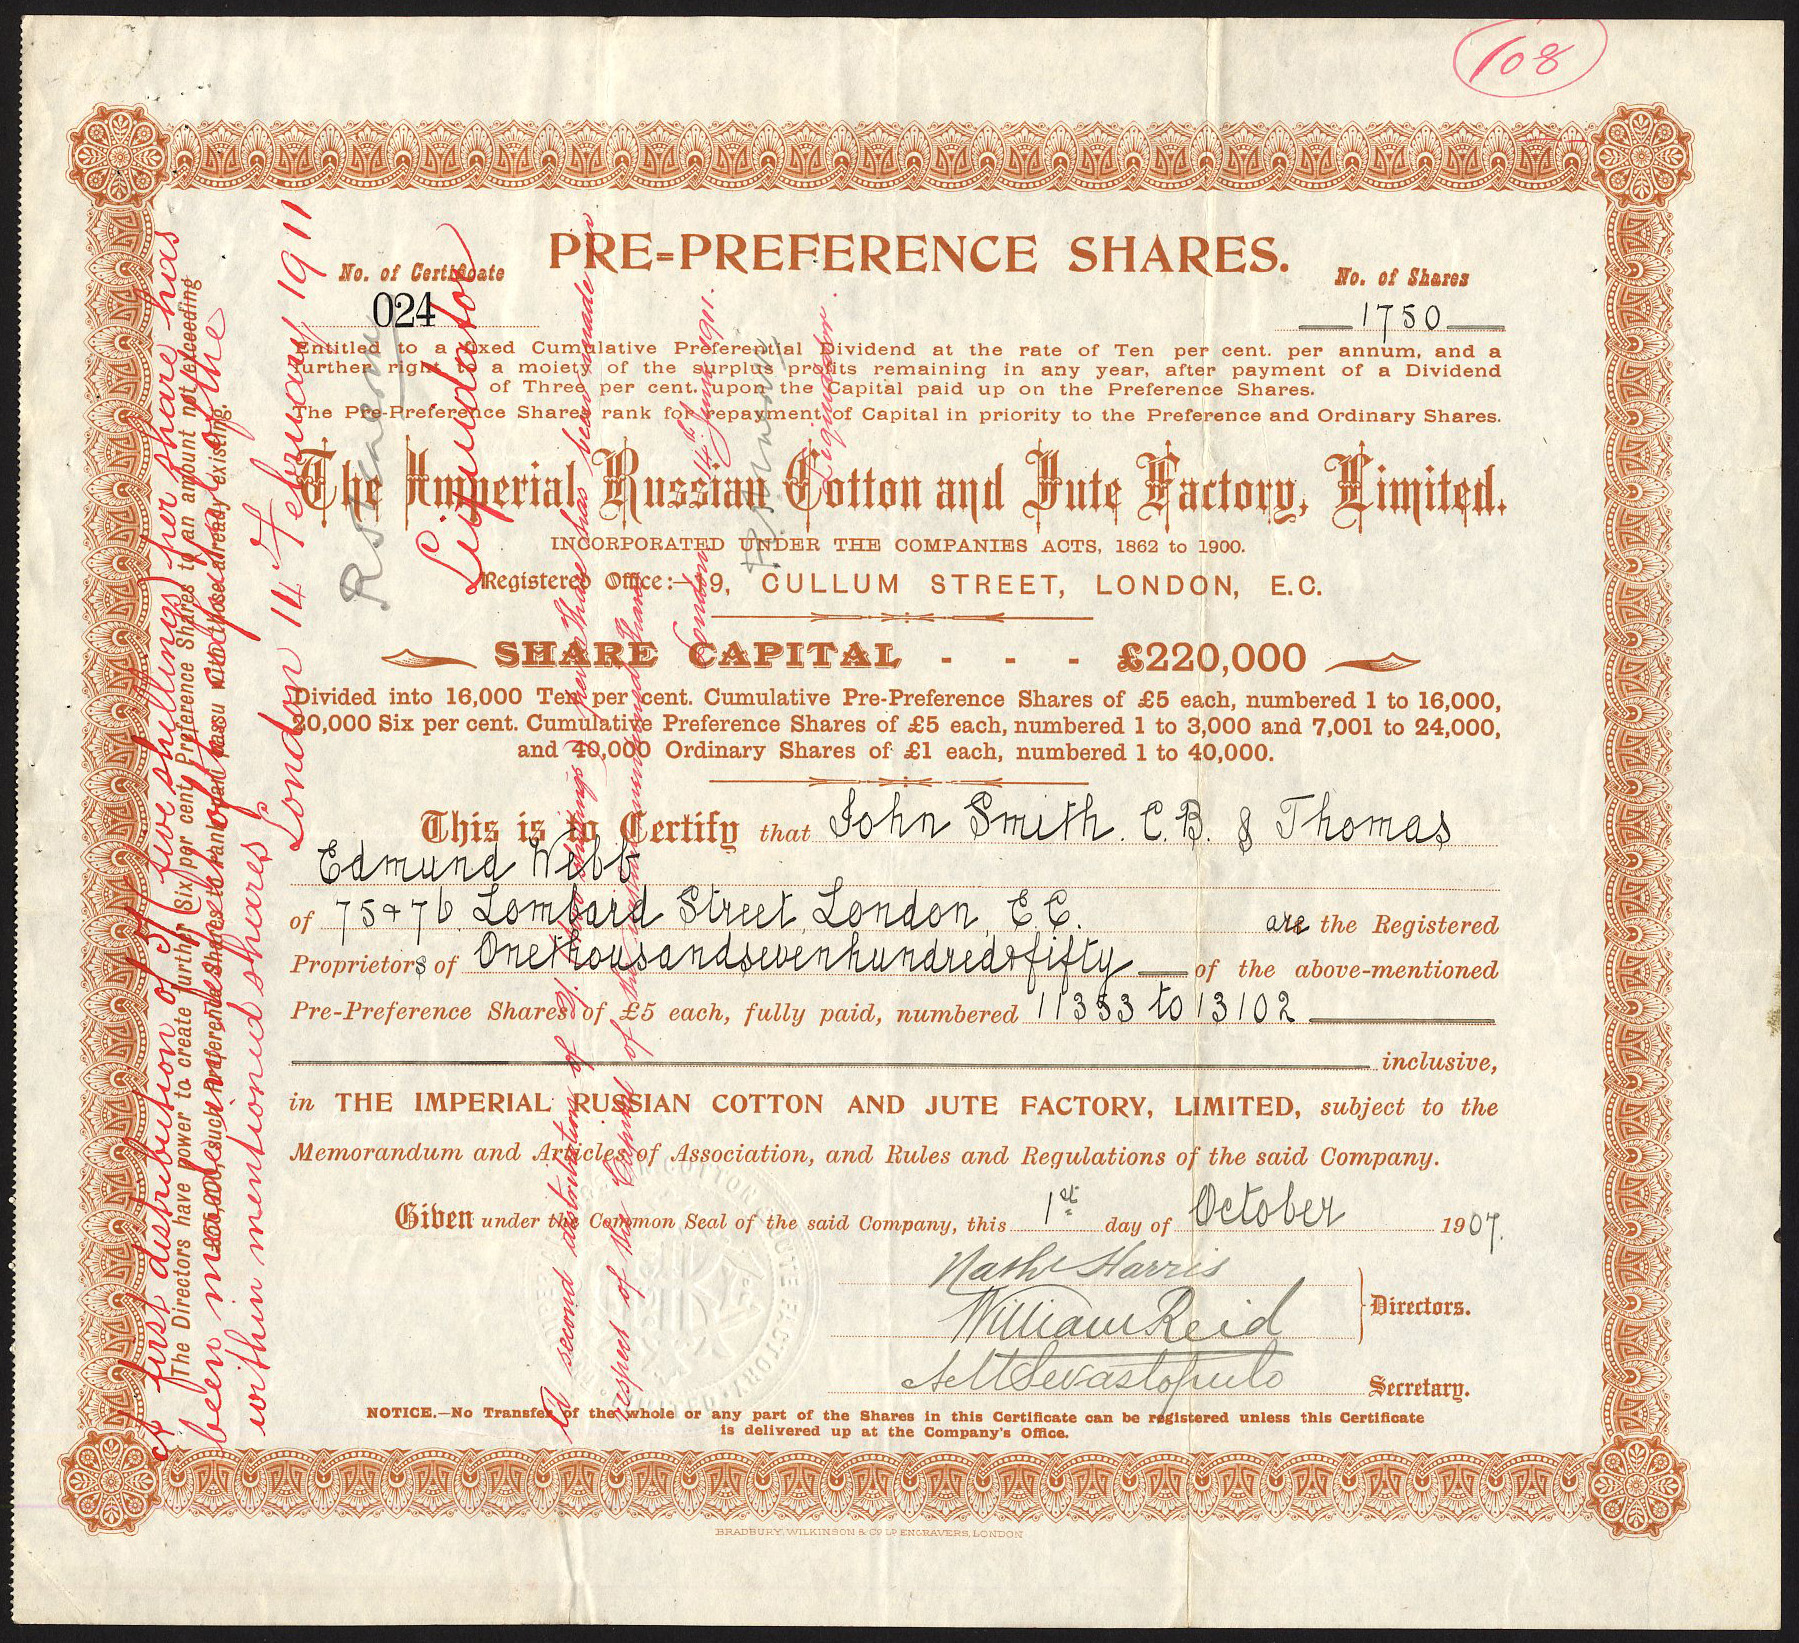 108
PRE=PREFERENCE SHARES.
No. of Certificate
024
No. of Shares
1750
Entitled to a fixed Cumulative Preferential Dividend at the rate of Ten per cent. per annum, and a
further right to a moiety of the surplus profits remaining in any year, after payment of a Dividend
of Three per cent. upon the Capital paid up on the Preference Shares.
The Pre-Preference Shares rank for repayment of Capital in priority to the Preference and Ordinary Shares.
The Imperial Russian Cotton and Jute Factory, Limited.
INCORPORATED UNDER THE COMPANIES ACTS, 1862 to 1900.
Registered Office:—19, CULLUM STREET, LONDON, E.C.
SHARE CAPITAL - - - £220,000
Divided into 16,000 Ten per cent. Cumulative Pre-Preference Shares of £5 each, numbered 1 to 16,000,
20,000 Six per cent. Cumulative Preference Shares of £5 each, numbered 1 to 3,000 and 7,001 to 24,000,
and 40,000 Ordinary Shares of £1 each, numbered 1 to 40,000.
This is to Certify that John Smith. C.B. & Thomas
Edmund Webb
of 75 & 76 Lombard Street, London, E.C. are the Registered
Proprietors of One thousand seven hundred & fifty of the above-mentioned
Pre-Preference Shares of £5 each, fully paid, numbered 11353 to 13102
inclusive,
in THE IMPERIAL RUSSIAN COTTON AND JUTE FACTORY, LIMITED, subject to the
Memorandum and Articles of Association, and Rules and Regulations of the said Company.
Given under the Common Seal of the said Company, this 1st day of October 1907.
Nathl Harris
William Reid
Directors.
A M Sevastopulo
Secretary.
NOTICE.—No Transfer of the whole or any part of the Shares in this Certificate can be registered unless this Certificate
is delivered up at the Company's Office.
BRADBURY, WILKINSON & Co Ld ENGRAVERS, LONDON
The Directors have power to create further Six per cent. Preference Shares to an amount not exceeding
£35,000, such Preference Shares to rank pari passu with those already existing.
A first distribution of 5/ (five shillings) per share has
been made in respect of the Capital of the
within mentioned shares
London 14 February 1911
Liquidator
A second distribution of 2/. two shillings per share has been made in
respect of the Capital of the within mentioned shares
London 14th June 1911.
Liquidator.